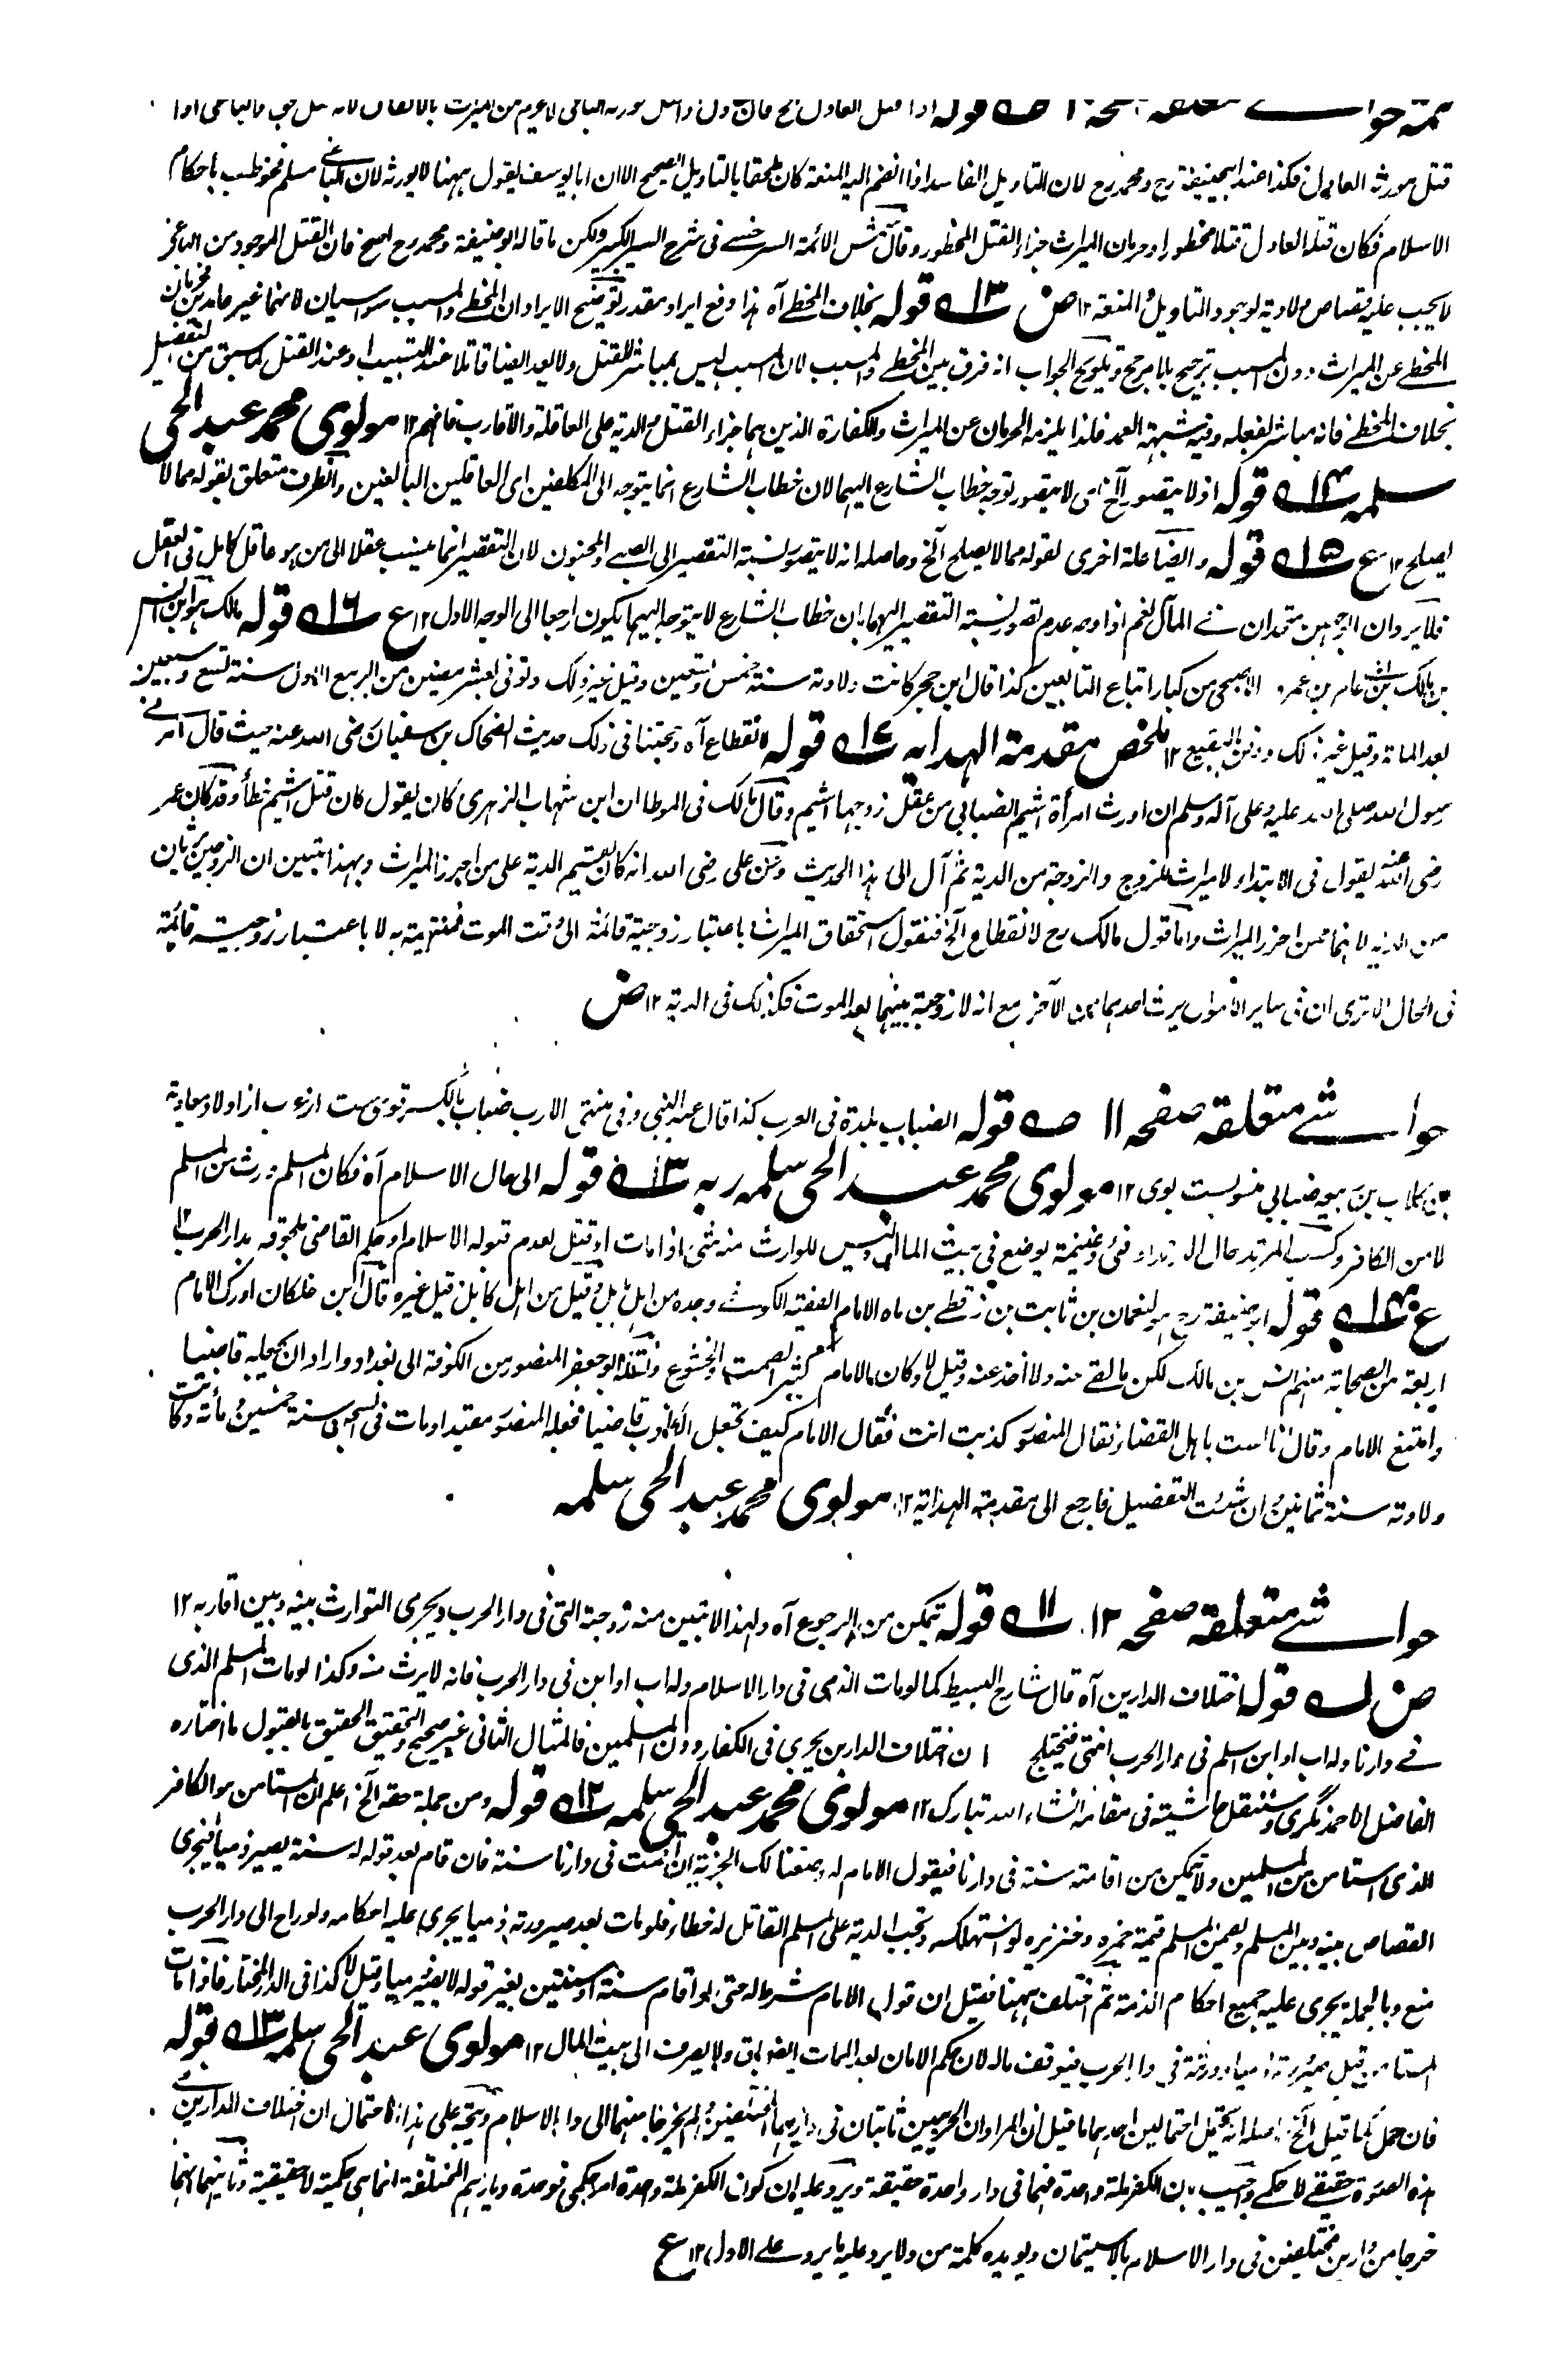 تتمة حواشي متعلقة صفحة ١٠ قوله اذا قتل العادل الخ فان
قتل مورثه العادل فكذا عند ابيحنيفة رح ومحمد رح لان التاويل الفاسد اذا انضم اليه المنعة كان ملحقا بالتاويل الصحيح الا ان ابا يوسف يقول ههنا لا يورثه لان الباغي مسلم مخوطب باحكام
الاسلام فكان قتله العادل قتلا محظورا وحرمان الميراث جزاء القتل المحظور وقال شمس الائمة السرخسي في شرح السير الكبير ولكن ما قاله ابو حنيفة ومحمد رح اصح فان القتل الموجود من الباغي
لا يجب عليه قصاص ولا دية لوجود التاويل والمنعة ١٢ ص ١٣ قوله بخلاف المخطئ آه هذا دفع ايراد مقدر توضيح الايراد ان المخطئ والمسبب سواسيان لانهما غير عامدين فحرمان
المخطئ عن الميراث دون المسبب ترجيح بلا مرجح وتلويح الجواب انه فرق بين المخطئ والمسبب لان المسبب ليس بمباشر للقتل ولا يعد ايضا قاتلا عند التسبيب وعند القتل كما سبق من التفصيل
بخلاف المخطئ فانه مباشر لفعله وفيه شبهة العمد فلذا يلزمه الحرمان عن الميراث والكفارة الذين هما جزاء القتل والدية على العاقلة والاقارب فافهم ١٢ مولوى محمد عبد الحى
سلمه ١٤ قوله اذ لا يتصور الخ اى لا يتصور توجه خطاب الشارع اليهما لان خطاب الشارع انما يتوجه الى المكلفين اى العاقلين البالغين والظرف متعلق بقوله مما لا
يصلح ١٢ ع ١٥ قوله و ايضا علة اخرى لقوله مما لا يصلح الخ وحاصله انه لا يتصور نسبة التقصير الى الصبي والمجنون لان التقصير انما ينسب عقلا الى من هو عاقل كامل في العقل
فلا يرد ان الوجهين متحدان في المآل نعم اذا وجه عدم تصور نسبة التقصير اليهما بان خطاب الشارع لا يتوجه اليهما يكون راجعا الى الوجه الاول ١٢ ع ١٦ قوله مالك هو ابن انس
بن مالك بن عامر بن عمرو الاصبحى من كبار اتباع التابعين كذا قال ابن حجر كانت ولادته سنة خمس وتسعين وقيل غير ذلك وتوفى لعشر مضين من الربيع الاول سنة تسع وسبعين
بعد المائة وقيل غير ذلك ودفن بالبقيع ١٢ ملخص مقدمة الهدايه ١٧ قوله لانقطاع آه وحجتنا في ذلك حديث الضحاك بن سفيان رضى الله عنه حيث قال امرني
رسول الله صلى الله عليه وعلى آله وسلم ان اورث امرأة اشيم الضبابي من عقل زوجها اشيم وقال مالك في الموطا ان ابن شهاب الزهري كان يقول كان قتل اشيم خطأ وقد كان عمر
رضى الله عنه يقول في الابتداء لا ميراث للزوج والزوجة من الدية ثم آل الى هذا الحديث وعن على رضى الله انه كان يقسم الدية على من احرز الميراث وبهذا تبين ان الزوجين يرثان
من الدية لانهما ممن احرز الميراث واما قول مالك رح لانقطاع الخ فنقول استحقاق الميراث باعتبار زوجية قائمة الى وقت الموت منتهية به لا باعتبار زوجية قائمة
في الحال الا ترى ان في سائر الاموال يرث احدهما من الآخر مع انه لا زوجية بينهما بعد الموت فكذلك في الدية ١٢ ص
حواشي متعلقه صفحه ١١ قوله الضباب بلدة في العرب كذا قال عبد النبي وفي منتهى الارب ضباب بالكسر قومى ست از عرب از اولاد معاوية
بن كلاب بن ربيعه ضبابي منسوبست بوى ١٢ مولوى محمد عبد الحى سلمه ربه ١٣ قوله الى حال الاسلام آه فكان المسلم ورث من المسلم
لا من الكافر وكسب المرتد حال الارتداد فئ وغنيمة يوضع في بيت المال وليس للوارث منه شئ اذا مات او قتل لعدم قبوله الاسلام او حكم القاضى بلحوقه بدار الحرب ١٢
ع ١٤ قوله ابو حنيفة رح هو النعمان بن ثابت بن زوطى بن ماه الامام الفقيه الكوفي وجده من اهل بابل وقيل من اهل كابل وقيل غيره قال ابن خلكان ادرك الامام
اربعة من الصحابة منهم انس بن مالك لكن ما لقى منه ولا اخذ عنه وقيل لا وكان الامام كثير الصمت والخشوع ونقله ابو جعفر المنصور من الكوفة الى بغداد واراد ان يجعله قاضيا
وامتنع الامام وقال انا لست باهل القضاء فقال المنصور كذبت انت فقال الامام كيف تجعل الكاذب قاضيا فجعله المنصور مقيدا ومات في السجن سنة خمسين ومأته وكانت
ولادته سنة ثمانين ان شئت التفصيل فارجع الى مقدمة الهداية ١٢ مولوى محمد عبد الحى سلمه
حواشي متعلقه صفحه ١٢ ١١ قوله تمكن من الرجوع آه ولهذا لا تبين منه زوجته التى في دار الحرب ويجرى التوارث بينه وبين اقاربه ١٢
ص قوله اختلاف الدارين آه قال شارح البسيط كما لو مات الذمى في دار الاسلام وله اب او ابن في دار الحرب فانه لا يرث منه وكذا لو مات المسلم الذى
في دارنا وله اب او ابن اسلم في دار الحرب انتهى فيختلج ان اختلاف الدارين يجرى في الكفار دون المسلمين فالمثال الثانى غير صحيح والتحقيق الحقيق بالقبول ما اختاره
الفاضل الاحمد نگرى وسننقل حاشيته في مقامه انشاء الله تبارك ١٢ مولوى محمد عبد الحى سلمه ١٢ قوله ومن جملة حقه الخ اعلم ان المستامن هو الكافر
الذى استامن من المسلمين ولا يمكن من اقامته سنة في دارنا فيقول الامام له وضعنا لك الجزية ان اقمت في دارنا سنة فان قام بعد قوله له سنة يصير ذميا فيجرى
القصاص بينه وبين المسلم ويضمن المسلم قيمة خمره وخنزيره لو استهلكه وتجب الدية على المسلم القاتل له خطاء فلو مات بعد صيرورته ذميا يجرى عليه احكامه ولو راح الى دار الحرب
منع وبالجملة يجرى عليه جميع احكام الذمة ثم اختلف ههنا فقيل ان قول الامام شرط له حتى لو اقام سنة او سنتين بغير قوله لا يصير ذميا وقيل لا كذا في الدر المختار فاذا مات
المستامن قبل صيرورته ذميا وورثته في دار الحرب فيوقف ماله لان حكم الامان بعد الممات ايضا باق ولا يصرف الى بيت المال ١٢ مولوى عبد الحى سلمه ١٣ قوله
فان حمل كما قيل الخ حاصله انه يحتمل احتمالين احدهما ما قيل ان المراد ان الحربيين ثابتان في داريهما المختلفين ولم يخرجا منهما الى دار الاسلام ويتجه على هذا الاحتمال ان اختلاف الدارين في
هذه الصورة حقيقى لا حكمى واجيب بان الكفر ملة واحدة فهما في دار واحدة حقيقة ويرد عليه ان كون الكفر ملة واحدة امر حكمى فوحدة ديارهم المختلفة انما هى حكمية لا حقيقية وثانيهما انهما
خرجا من دارين مختلفين في دار الاسلام بالاستيمان ويؤيده كلمة من ولا يرد عليه ما يرد على الاول ١٢ ع